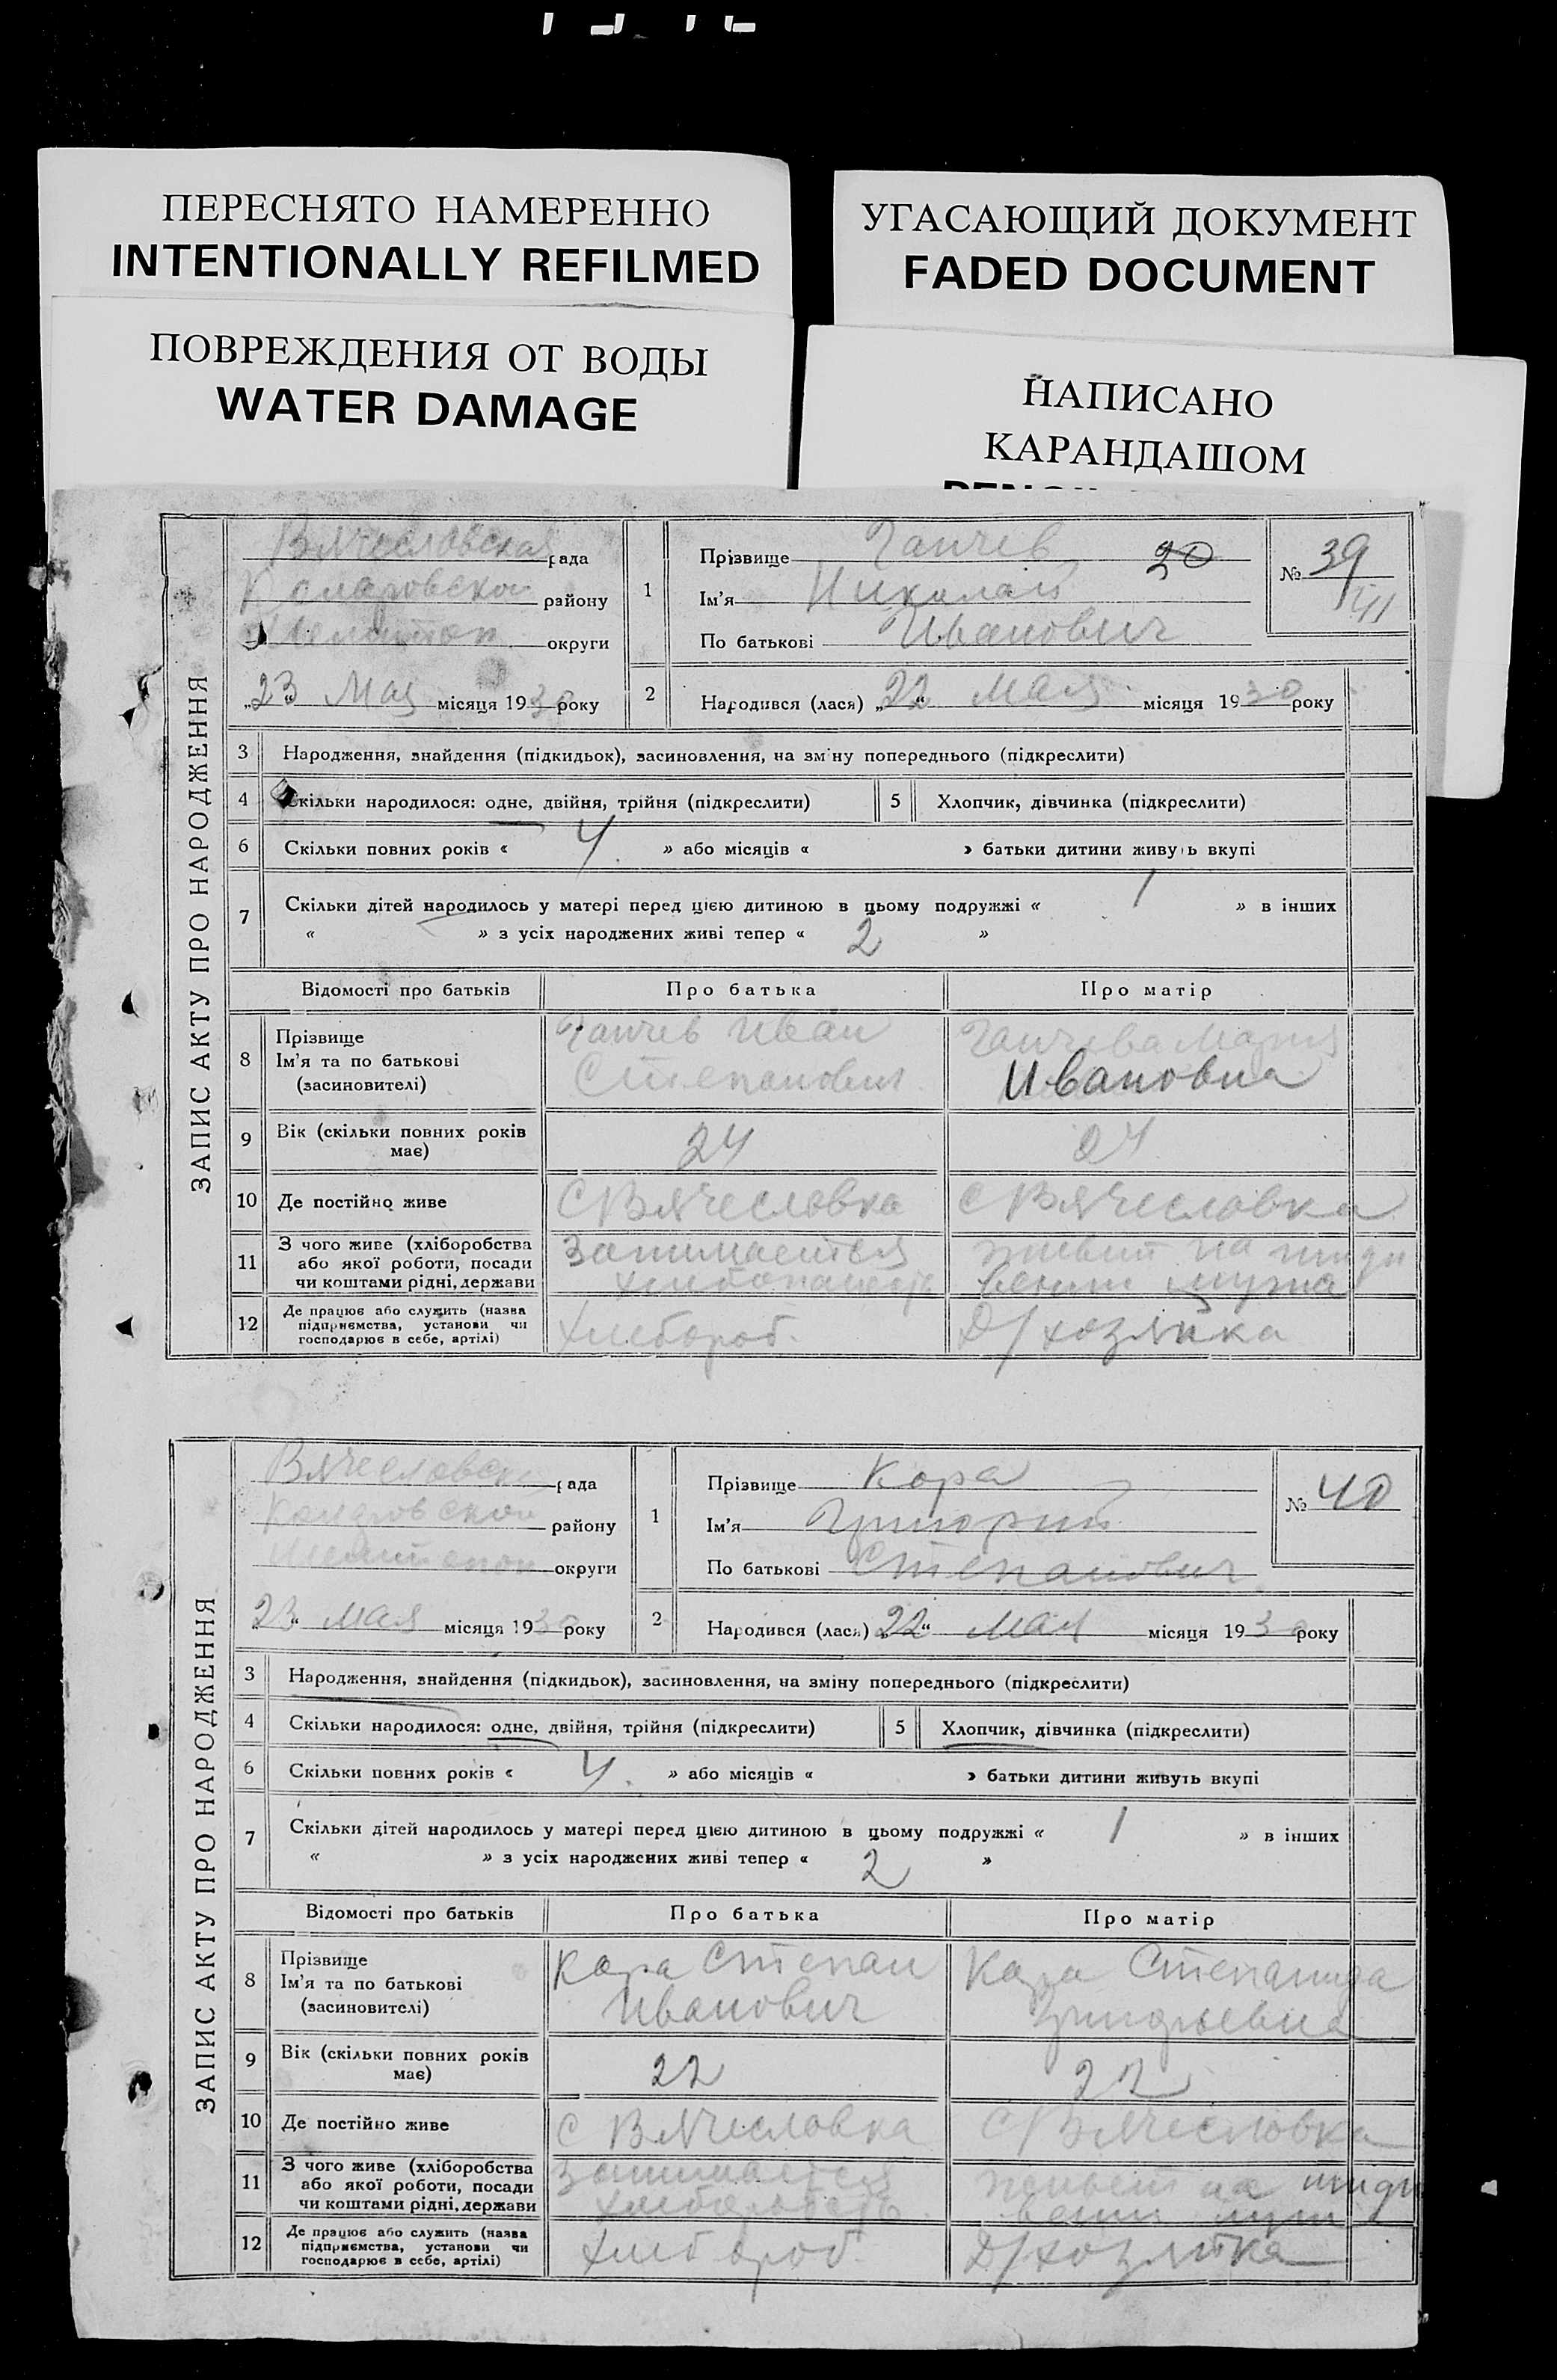 ПЕРЕСНЯТО НАМЕРЕННО
INTENTIONALLY REFILMED
УГАСАЮЩИЙ ДОКУМЕНТ
FADED DOCUMENT
ПОВРЕЖДЕНИЯ ОТ ВОДЫ
WATER DAMAGE
НАПИСАНО
КАРАНДАШОМ
ЗАПИС АКТУ ПРО НАРОДЖЕННЯ
Вячесловская рада
району
округи
„23“ Мая місяця 1930 року
1
Прізвище Ганчев 20
Ім'я Николай
По батькові Иванович
№ 39
2
Народився (лася) „22“ Мая місяця 1930 року
3 Народження, знайдення (підкидьок), засиновлення, на зміну попереднього (підкреслити)
4 Скільки народилося: одне, двійня, трійня (підкреслити) 5 Хлопчик, дівчинка (підкреслити)
6 Скільки повних років « 4 » або місяців « » батьки дитини живуть вкупі
7 Скільки дітей народилось у матері перед цією дитиною в цьому подружжі « 1 » в інших
« » з усіх народжених живі тепер « 2 »
Відомості про батьків Про батька Про матір
8 Прізвище
Ім'я та по батькові
(засиновителі)
Ганчев Иван
Степанович
Ганчева Мария
Ивановна
9 Вік (скільки повних років
має)
24 24
10 Де постійно живе С Вячесловка С Вячесловка
11 З чого живе (хліборобства
або якої роботи, посади
чи коштами рідні, держави
Занимается
живит на
мужа
12 Де працює або служить (назва
підприємства, установи чи
господарює в себе, артілі)
Хлебороб. Д/хозяйка
ЗАПИС АКТУ ПРО НАРОДЖЕННЯ
рада
району
округи
„23“ Мая місяця 1930 року
1
Прізвище Кора
Ім'я Григорий
По батькові Степанович
№ 40
2
Народився (лася) „22“ Мая місяця 1930 року
3 Народження, знайдення (підкидьок), засиновлення, на зміну попереднього (підкреслити)
4 Скільки народилося: одне, двійня, трійня (підкреслити) 5 Хлопчик, дівчинка (підкреслити)
6 Скільки повних років « 4. » або місяців « » батьки дитини живуть вкупі
7 Скільки дітей народилось у матері перед цією дитиною в цьому подружжі « 1 » в інших
« » з усіх народжених живі тепер « 2 »
Відомості про батьків Про батька Про матір
8 Прізвище
Ім'я та по батькові
(засиновителі)
Кора Степан
Иванович
Кора Степанида
9 Вік (скільки повних років
має)
22 22
10 Де постійно живе С Вячесловка С/Вячесловка
11 З чого живе (хліборобства
або якої роботи, посади
чи коштами рідні, держави
Занимается
на
12 Де працює або служить (назва
підприємства, установи чи
господарює в себе, артілі)
Хлебороб Д/хозяйка